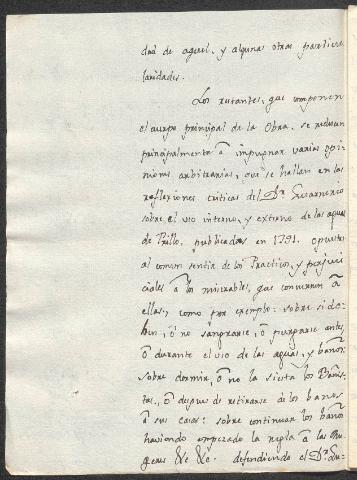 dad de aquel, y algunas otras particu
laridades.
Los restantes, que componen
el cuerpo principal de la Obra, se reducen
principalmente à impugnar varias opi
niones arbitrarias, que se hallan en las
reflexiones criticas del Dr.
sobre el uso interno, y externo de las aguas
de Trillo, publicadas en 1791. opuestas
al comun sentir de los Practicos, y perjui
ciales à los miserables, que concurren à
ellas, como por exemplo: sobre si de-
ben, ò no sangrarse, ò purgarse antes,
ò durante el uso de las aguas, y baños:
sobre dormir, ò no la siesta los Bañis-
tas, ò despues de retirarse de los baños
à sus casas: sobre continuar los baños
haviendo empezado la regla à las Mu-
geres &c &c. defendiendo el Dr.